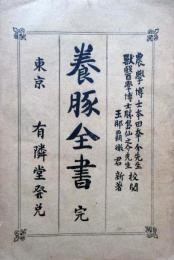 農學博士本田幸介先生
獸醫學博士勝島仙之介先生 校閱
玉利 君 新著
養豚全書 完
東京 有隣堂發兌